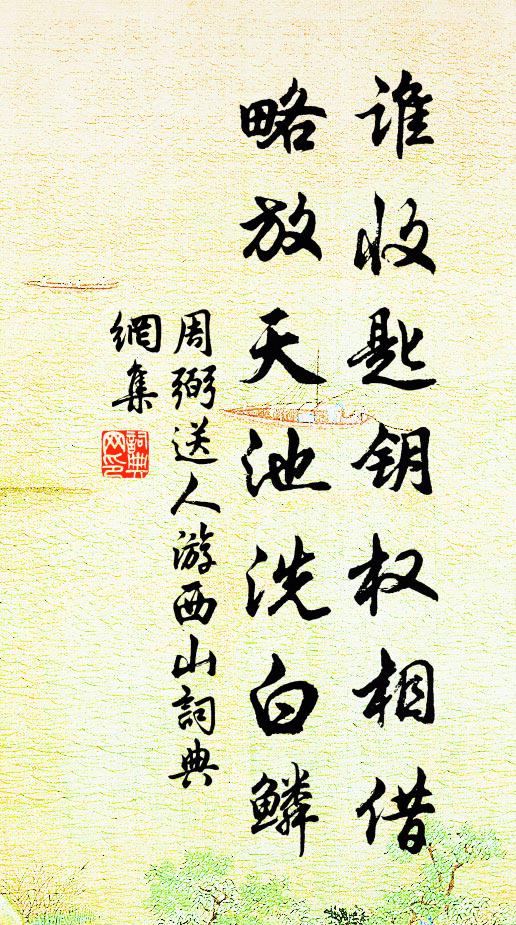 谁收匙钥权相借
略放天池洗白鳞
周弼送人游西山詞典
網集
詞典
网印